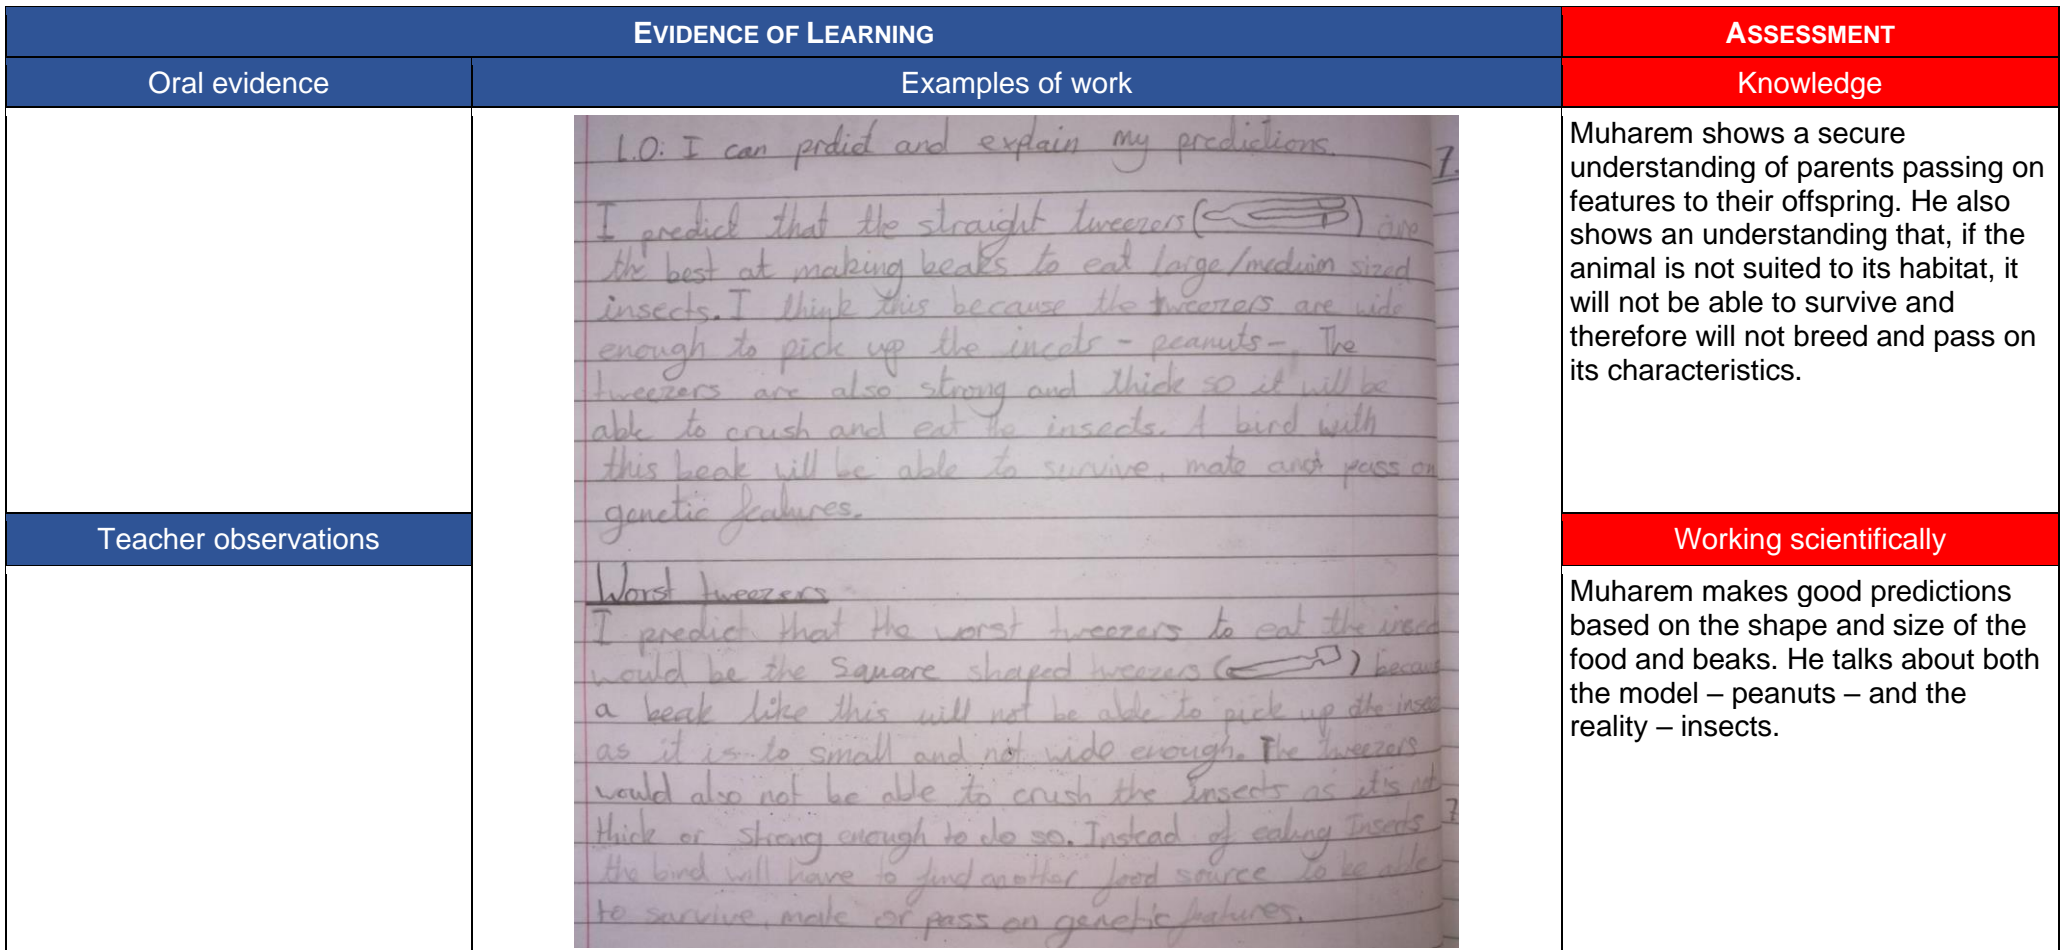 EVIDENCE OF LEARNING
ASSESSMENT
Oral evidence
Examples of work
Knowledge
L.O: I can prdict and explain my predictions.
7.
I predict that the straight tweezers ( ) are
the best at making beaks to eat large/medium sized
insects. I think this because the tweezers are wide
enough to pick up the incets - peanuts -. The
tweezers are also strong and thick so it will be
able to crush and eat the insects. A bird with
this beak will be able to survive, mate and pass on
genetic features.
Worst tweezers
I predict that the worst tweezers to eat the insec
would be the Square shaped tweezers ( ) becau
a beak like this will not be able to pick up the insec
as it is to small and not wide enough. The tweezers
would also not be able to crush the insects as it's not
7
thick or strong enough to do so. Instead of eating Insects
the bird will have to find another food source to be able
to survive, mate or pass on genetic features.
Muharem shows a secure
understanding of parents passing on
features to their offspring. He also
shows an understanding that, if the
animal is not suited to its habitat, it
will not be able to survive and
therefore will not breed and pass on
its characteristics.
Teacher observations
Working scientifically
Muharem makes good predictions
based on the shape and size of the
food and beaks. He talks about both
the model – peanuts – and the
reality – insects.